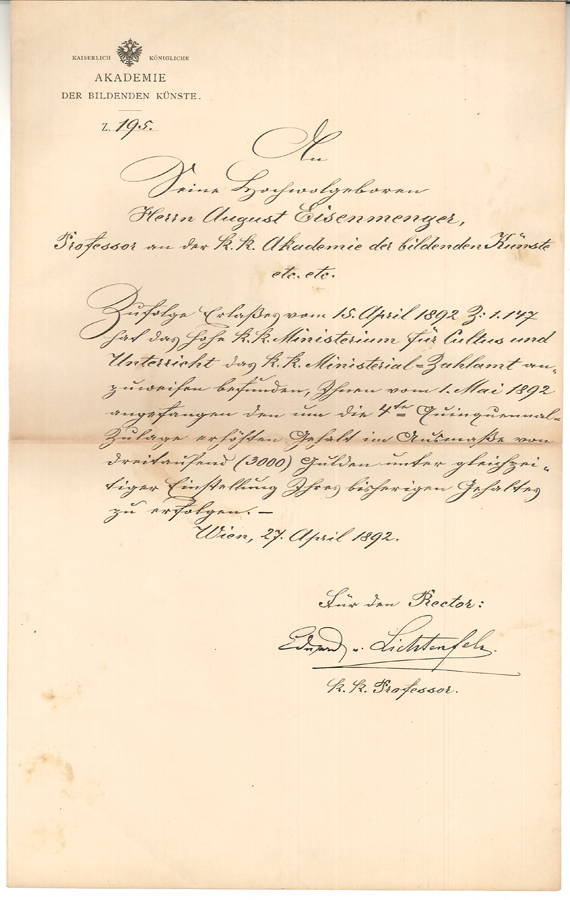 KAISERLICH KÖNIGLICHE
AKADEMIE
DER BILDENDEN KÜNSTE.
Z. 195.
An
Seine Hochwolgeboren
Herrn August Eisenmenger,
Professor an der k. k. Akademie der bildenden Künste
etc. etc.
Zufolge Erlaßes vom 15. April 1892 Z: 1.147
hat das hohe k. k. Ministerium für Cultus und
Unterricht das k. k. Ministerial-Zahlamt an-
zuweisen befunden, Ihnen vom 1. Mai 1892
angefangen den um die 4te Quinquennal-
Zulage erhöhten Gehalt im Ausmaße von
dreitausend (3000) Gulden unter gleichzei-
tiger Einstellung Ihres bisherigen Gehaltes
zu erfolgen.—
Wien, 27. April 1892.
Für den Rector:
Eduard v. Lichtenfels.
k. k. Professor.